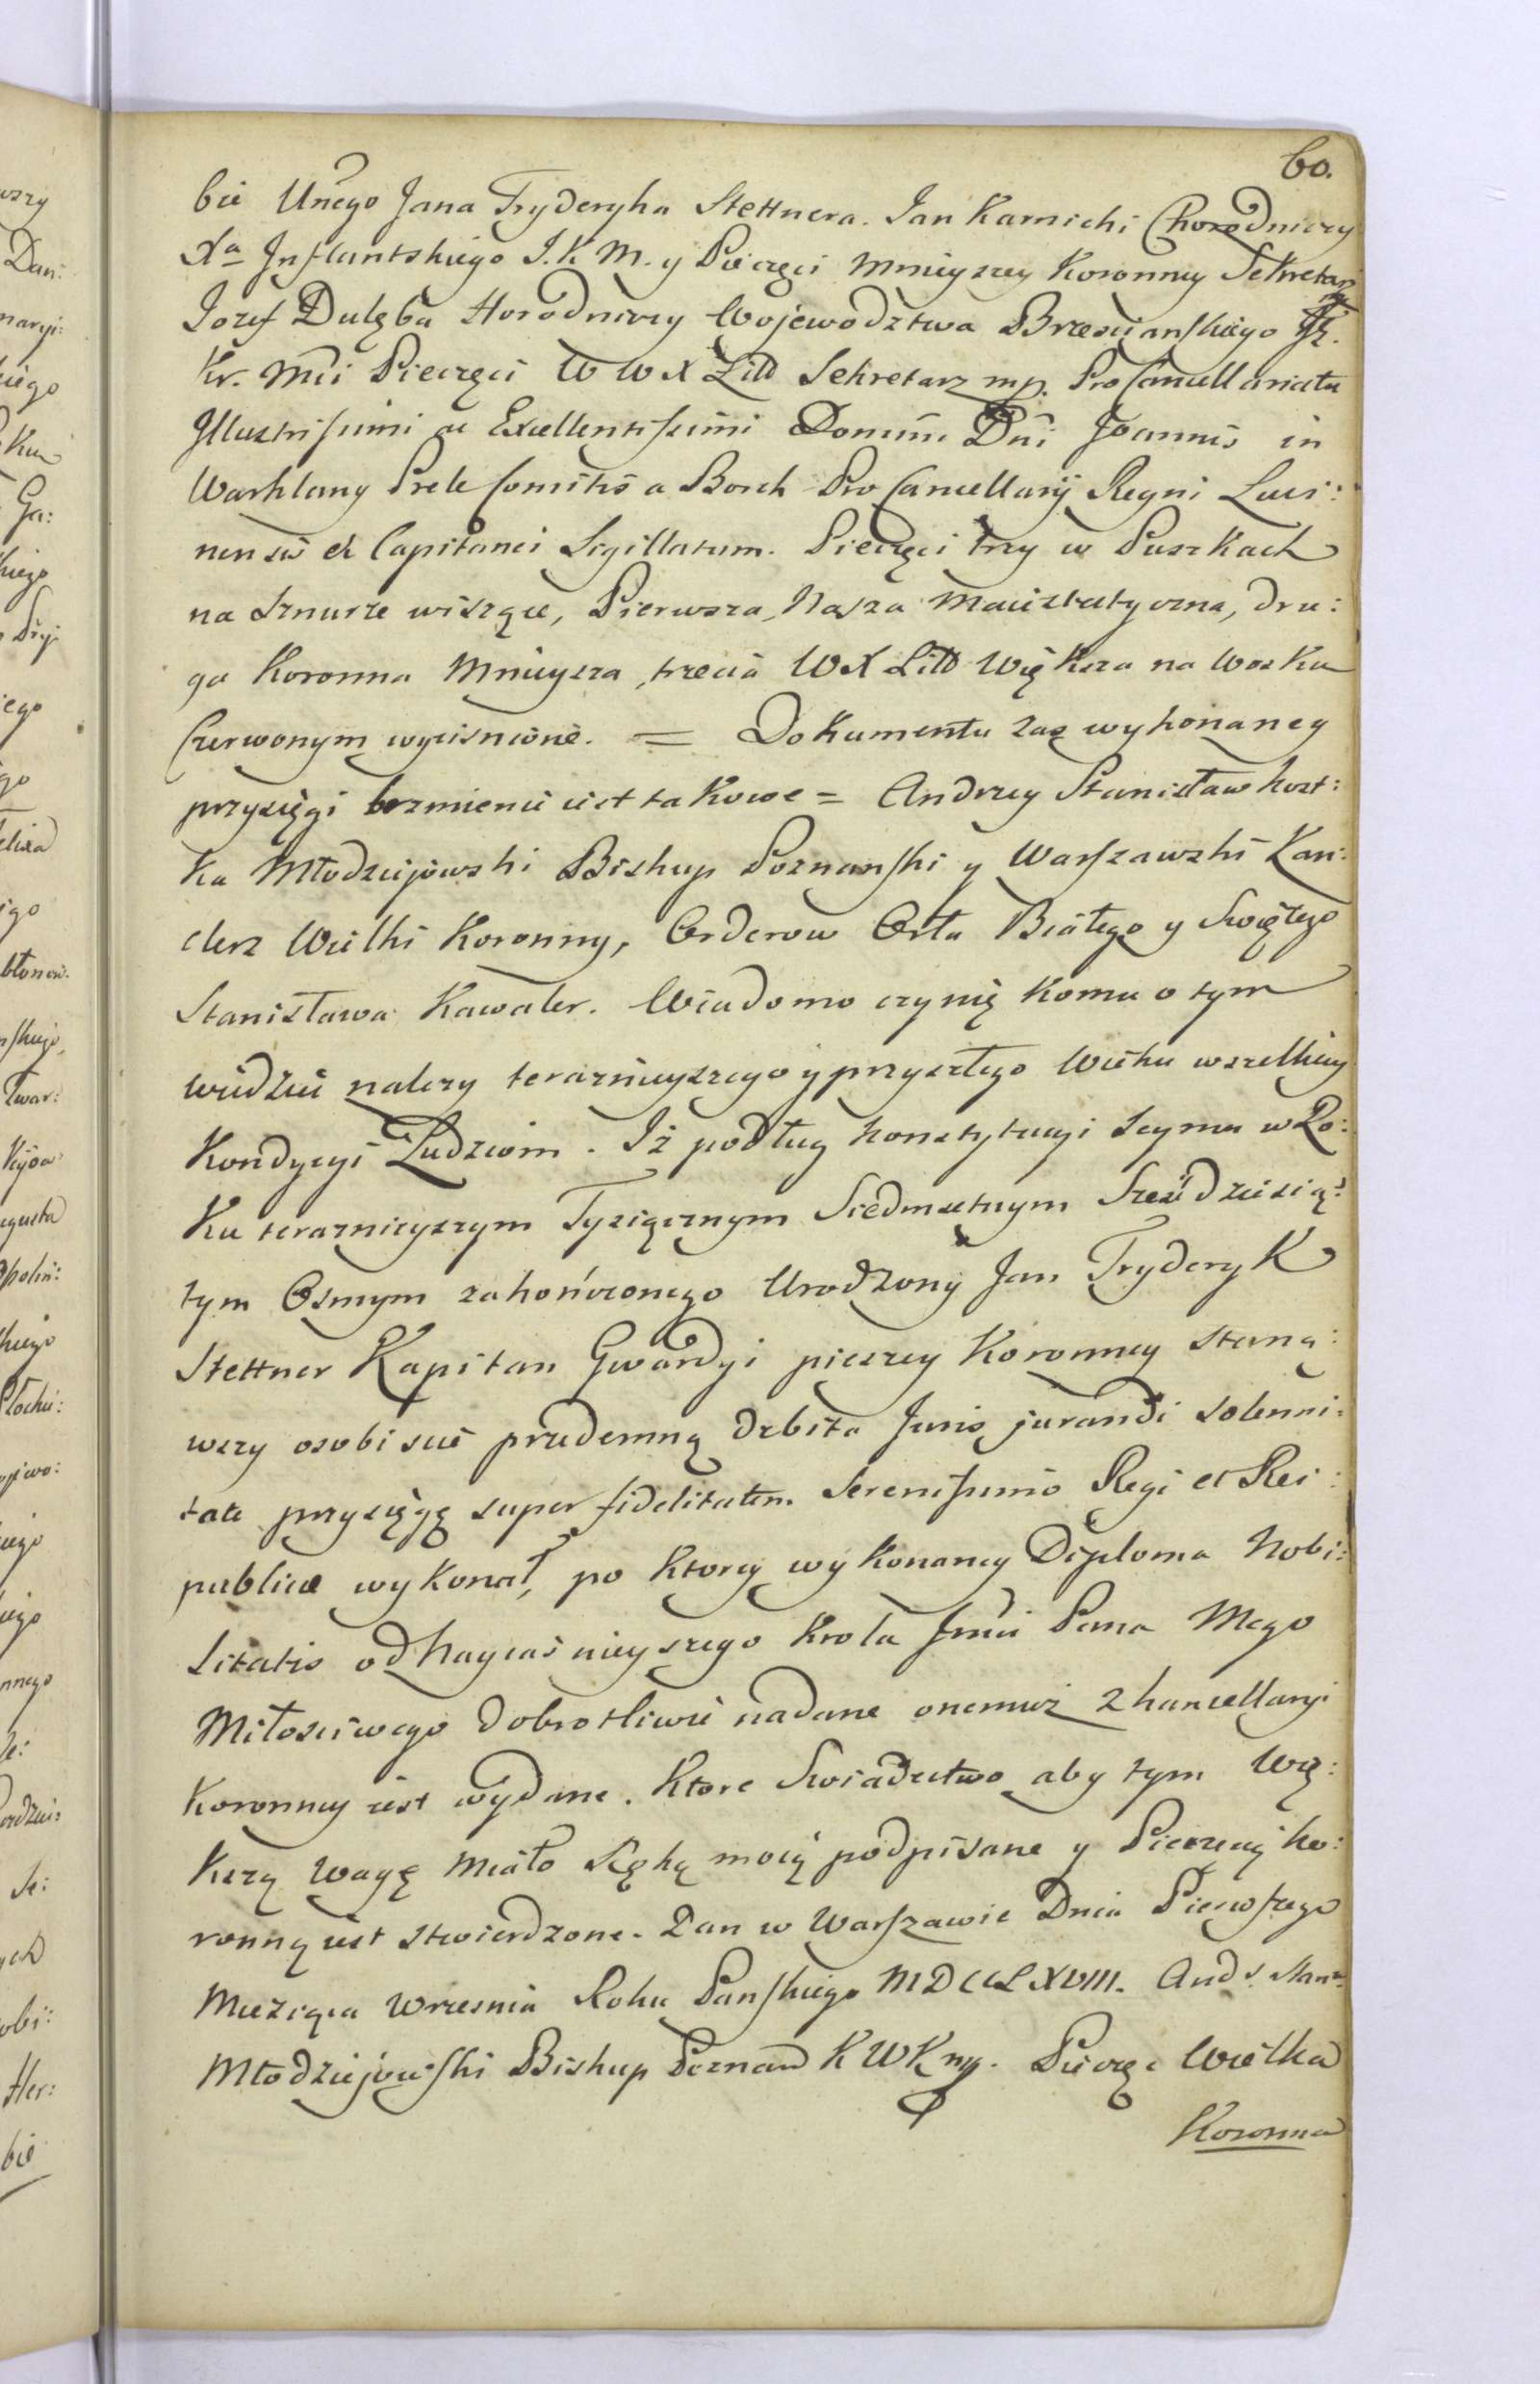 60.
bie Urnego Jana Fryderyka Stettnera. Jan Karnicki Chorodniczy
Xa Inflantskiego J. K. M. y Pieczęci Mnieyszey Koronney Sekretarz
Jozef Dulęba Horodniczy Wojewodztwa Brzescianskiego
Kr. Mci Pieczęci W W X Litt Sekretarz mp. ProCancellariatu
Illustrissimi ac Excellentissimi Domini Dni Joannis in
Warklany Prele Comitis a Borch ProCancellarij Regni Luci:
nensis et Capitanei Sigillatum. Pieczęci trzy w Puszkach
na Sznurze wiszące, Pierwsza, Nasza Maiestatyczna, dru:
ga Koronna Mnieysza, trzecia WX Litt Większa na Wosku
Czerwonym wycisnione. = Dokumentu zas wykonaney
przysięgi brzmienie iest takowe = Andrzey Stanisław Kost:
ka Młodziejowski Biskup Poznanski y Warszawski Kan:
clerz Wielki Koronny, Orderow Orła Białego y Swiętego
Stanisława Kawaler. Wiadomo czynię Komu o tym
wiedzieć nalezy terazniejszego y przyszłego Wieku wszelkiey
Kondycyi Ludziom. Iż podług Konstytucyi Seymu w Ro:
ku terazniejszym Tysiącznym Siedmsetnym Sześćdziesią:
tym Osmym zakończonego Urodzony Jan Fryderyk
Stettner Kapitan Gwardyi pieszey Koronney staną:
wszy osobiscie przedemną debita Juris jurandi solenni:
tate przysięgę super fidelitatem Serenissimo Regi et Rei:
publicæ wykonał, po Ktorey wykonaney Diploma Nobi:
litatis od Nayiasnieyszego Krola Jmći Pana Mego
Miłosciwego dobrotliwie nadane onemuż z Kancellaryi
Koronney iest wydane. Ktore Swiadectwo aby tym Wię:
kszą Wagę Miało Ręką moią podpisane y Pieczęcią Ko:
ronną iest stwierdzone. Dan w Warszawie Dnia Pierwszego
Miesiąca Wrzesnia Roku Panskiego MDCCLXVIII. And: Stan:
Młodziejowski Biskup Poznan K W K mp. Pieczęc Wielka
Koronna